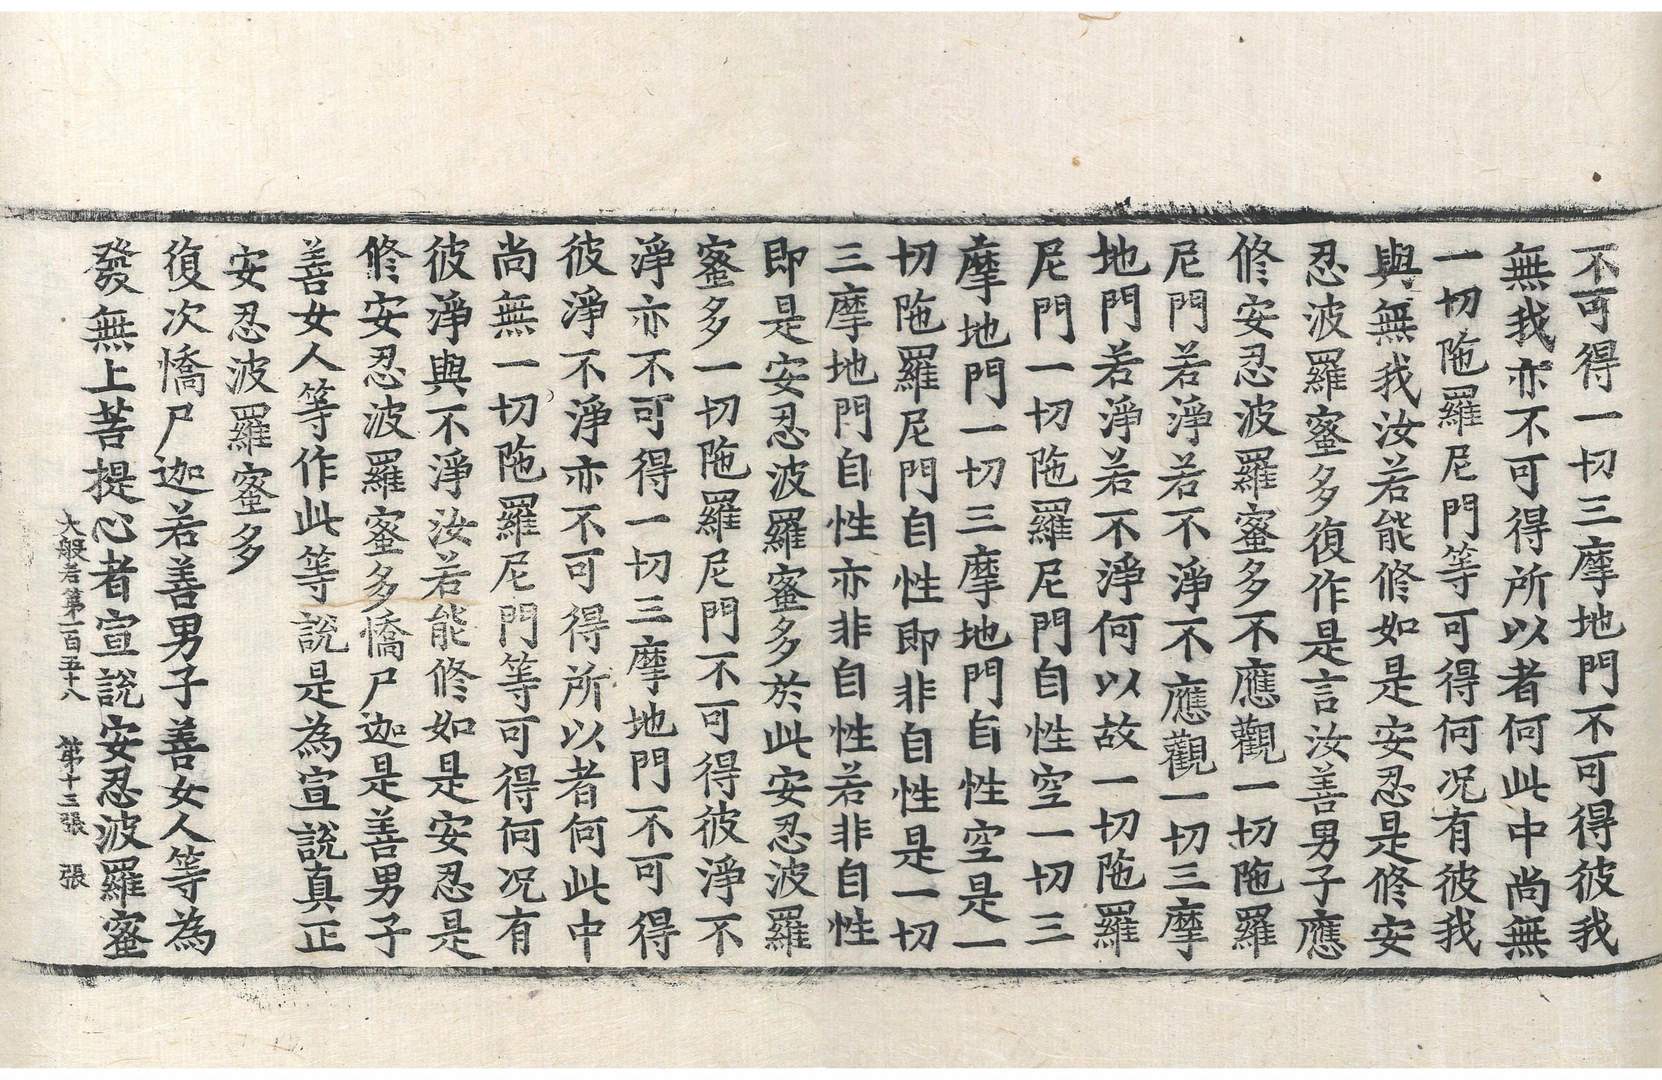 不可得一切三摩地門不可得彼我
無我亦不可得所以者何此中尚無
一切陁羅尼門等可得何况有彼我
與無我汝若能修如是安忍是修安
忍波羅蜜多復作是言汝善男子應
修安忍波羅蜜多不應觀一切陁羅
尼門若淨若不淨不應觀一切三摩
地門若淨若不淨何以故一切陁羅
尼門一切陁羅尼門自性空一切三
摩地門一切三摩地門自性空是一
切陁羅尼門自性即非自性是一切
三摩地門自性亦非自性若非自性
即是安忍波羅蜜多於此安忍波羅
蜜多一切陁羅尼門不可得彼淨不
淨亦不可得一切三摩地門不可得
彼淨不淨亦不可得所以者何此中
尚無一切陁羅尼門等可得何况有
彼淨與不淨汝若能修如是安忍是
修安忍波羅蜜多憍尸迦是善男子
善女人等作此等說是為宣說真正
安忍波羅蜜多
復次憍尸迦若善男子善女人等為
發無上菩提心者宣說安忍波羅蜜
大般若第一百五十八 第十三張 張